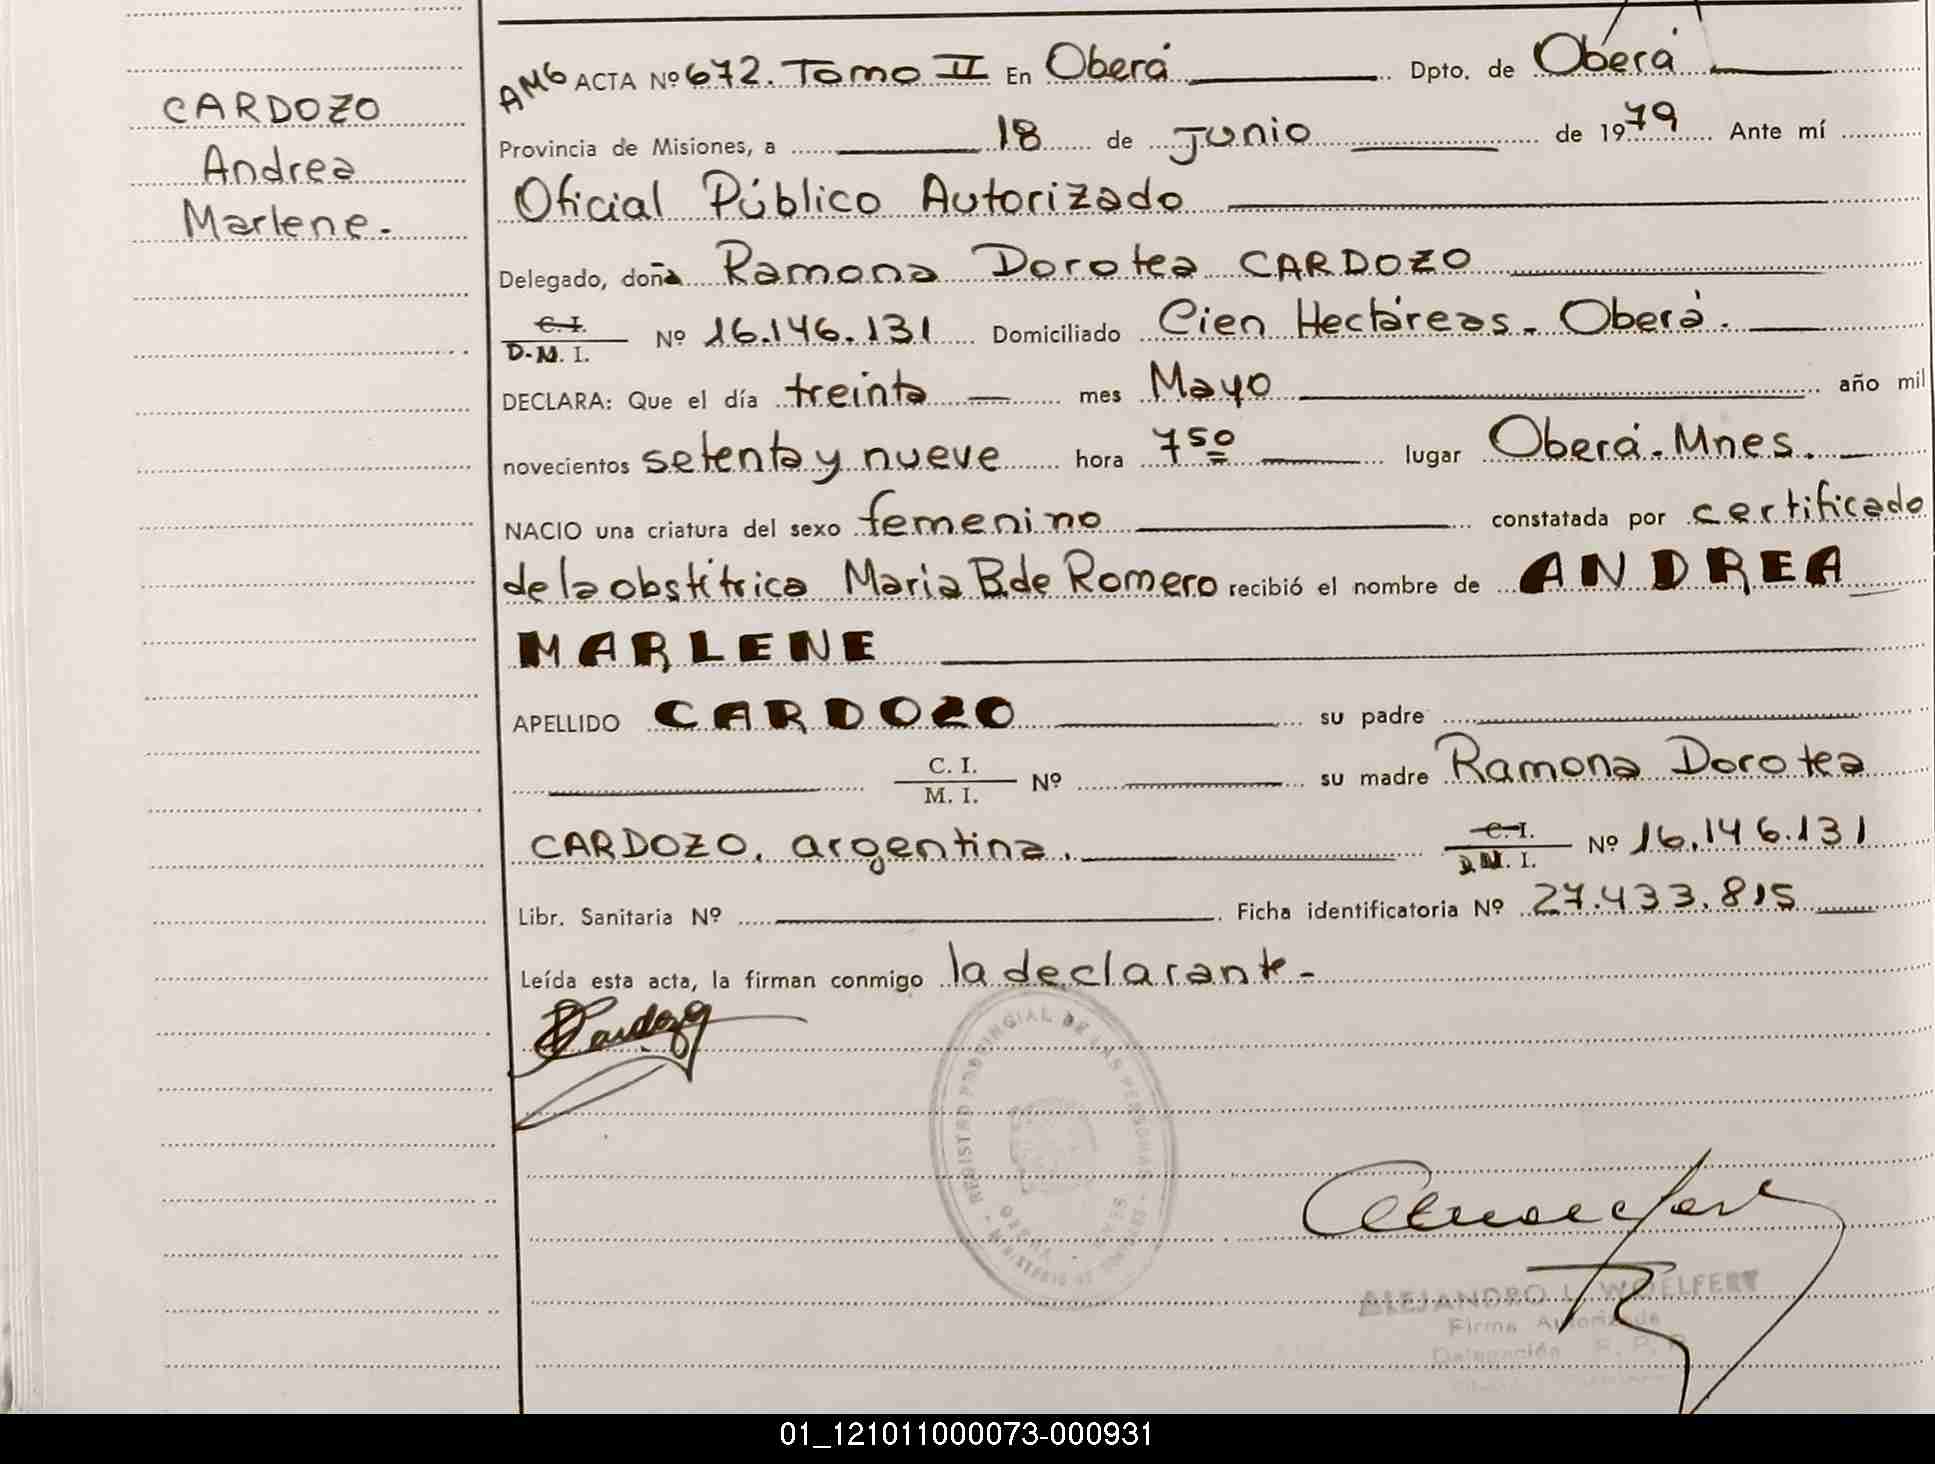 CARDOZO
Andrea
Marlene.
AMG ACTA Nº 672. Tomo II En Oberá Dpto. de Oberá
Provincia de Misiones, a 18 de Junio de 1979 Ante mí
Oficial Público Autorizado
Delegado, doña Ramona Dorotea CARDOZO
C. I.
D.M. I. Nº 16.146.131 Domiciliado Cien Hectáreas - Oberá.
DECLARA: Que el día treinta mes Mayo año mil
novecientos setenta y nueve hora 7 50 lugar Oberá - Mnes.
NACIO una criatura del sexo femenino constatada por certificado
de la obstítrica Maria B. de Romero recibió el nombre de ANDREA
MARLENE
APELLIDO CARDOZO su padre
C. I.
M. I. Nº su madre Ramona Dorotea
CARDOZO. argentina. C. I.
D.M. I. Nº 16.146.131
Libr. Sanitaria Nº Ficha identificatoria Nº 27.433.815
Leída esta acta, la firman conmigo la declarante -
Cardozo
REGISTRO PROVINCIAL DE LAS PERSONAS - MINISTERIO DE
OBERA - MNES
ALEJANDRO L. WOELFERT
Firma Autorizada
Delegación R. P. P.
01_121011000073-000931